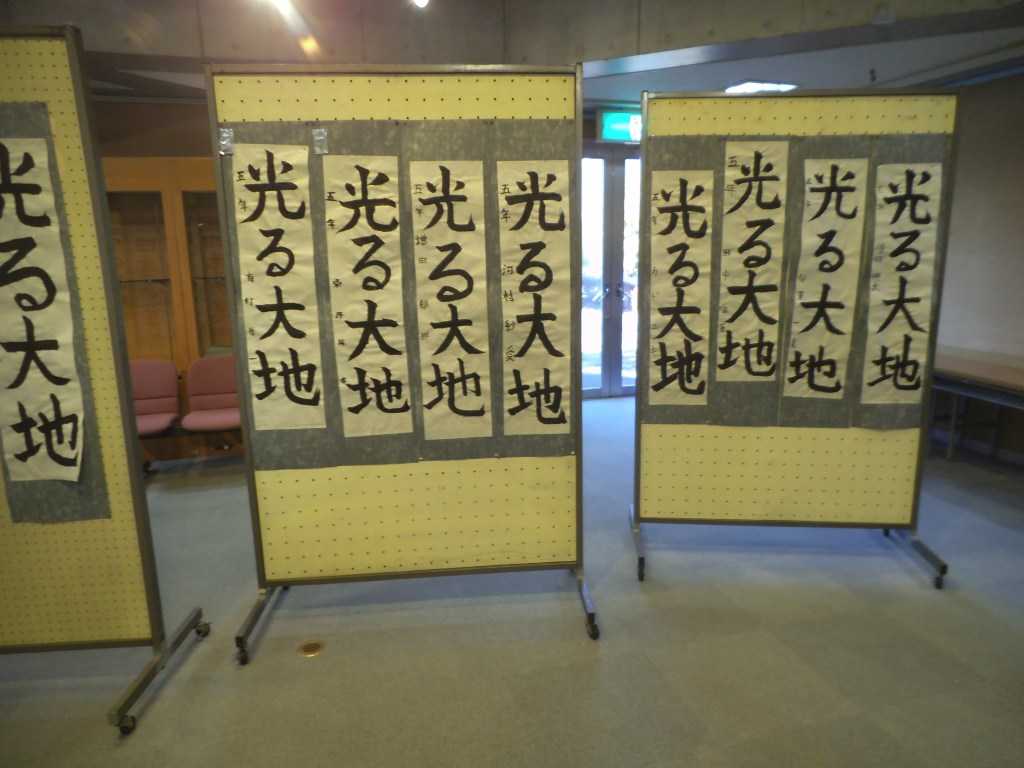 光る大地
光る大地
五年
光る大地
五年
光る大地
五年 増田
光る大地
五年 河村 紗愛
光る大地
五年
光る大地
五年 田中
光る大地
光る大地